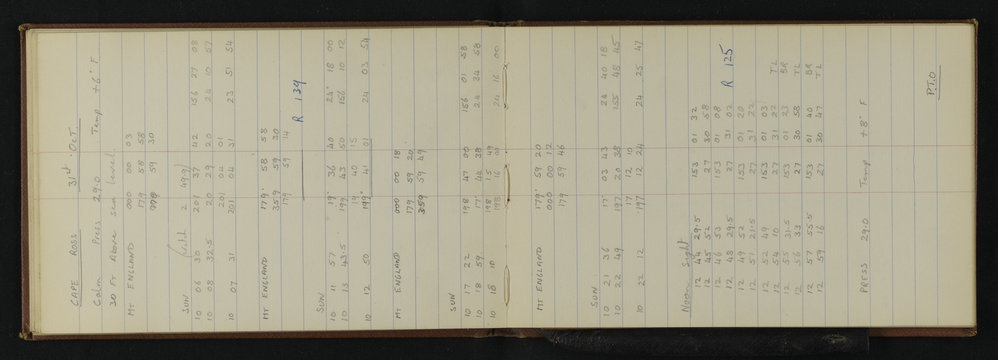 CAPE ROSS 31st OCT.
Calm Press 29.0 Temp +6° F
30 Ft Above sea level.
Mt ENGLAND 000 00 03
179 58 58
59 30
SUN 2 49 9
10 06 30 201 37 42 156 27 08
10 08 32.5 20 29 20 24 10 57
201 01
10 07 31 201 04 31 23 51 54
Mt ENGLAND 179° 58 58
359 59 30
179 59 14
R 139
SUN
10 11 57 19° 36 40 24° 18 00
10 13 43.5 199 43 50 156 10 12
19 40 15
10 12 50 199° 41 01 24 03 54
Mt ENGLAND 000 00 18
179 59 20
359 59 49
SUN
10 17 22 198 47 00 156 01 58
10 18 59 17 42 38 24 34 58
198 15 49
10 18 10 198 16 01 24 16 00
Mt ENGLAND 179° 59 20
000 00 12
179 59 46
SUN
10 21 36 17° 03 43 24 40 18
10 22 49 197 20 38 155 48 45
17 12 10
10 22 12 197 12 24 24 25 47
Noon Sight
12 44 29.5 153 01 32
12 45 52 27 30 58
12 46 53 153 01 08
12 48 29.5 27 31 02
R 125
12 49 52 153 01 20
12 51 21.5 27 31 22
12 52 49 153 01 03
12 54 10 27 31 22 TL
12 55 31.5 153 01 23 BR
12 56 33 27 30 58 TL
12 57 55.5 153 01 40 BR
12 59 16 27 30 47 TL
PRESS 29.0 Temp +8° F
P.T.O